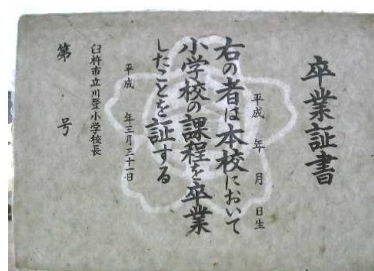 卒業証書
平成　年　月　日生
右の者は本校において
小学校の課程を卒業
したことを証する
平成　年三月三十一日
臼杵市立川登小学校長
第　号